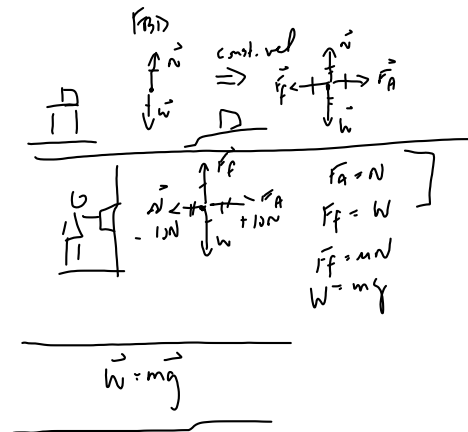 FBD
N⃗
W⃗
const. vel
⇒
N⃗
F⃗f
F⃗A
W⃗
F⃗f
N⃗
- 10N
FA
+ 10N
W
FA = N
Ff = W
Ff = μN
W = mg
W⃗ = mg⃗